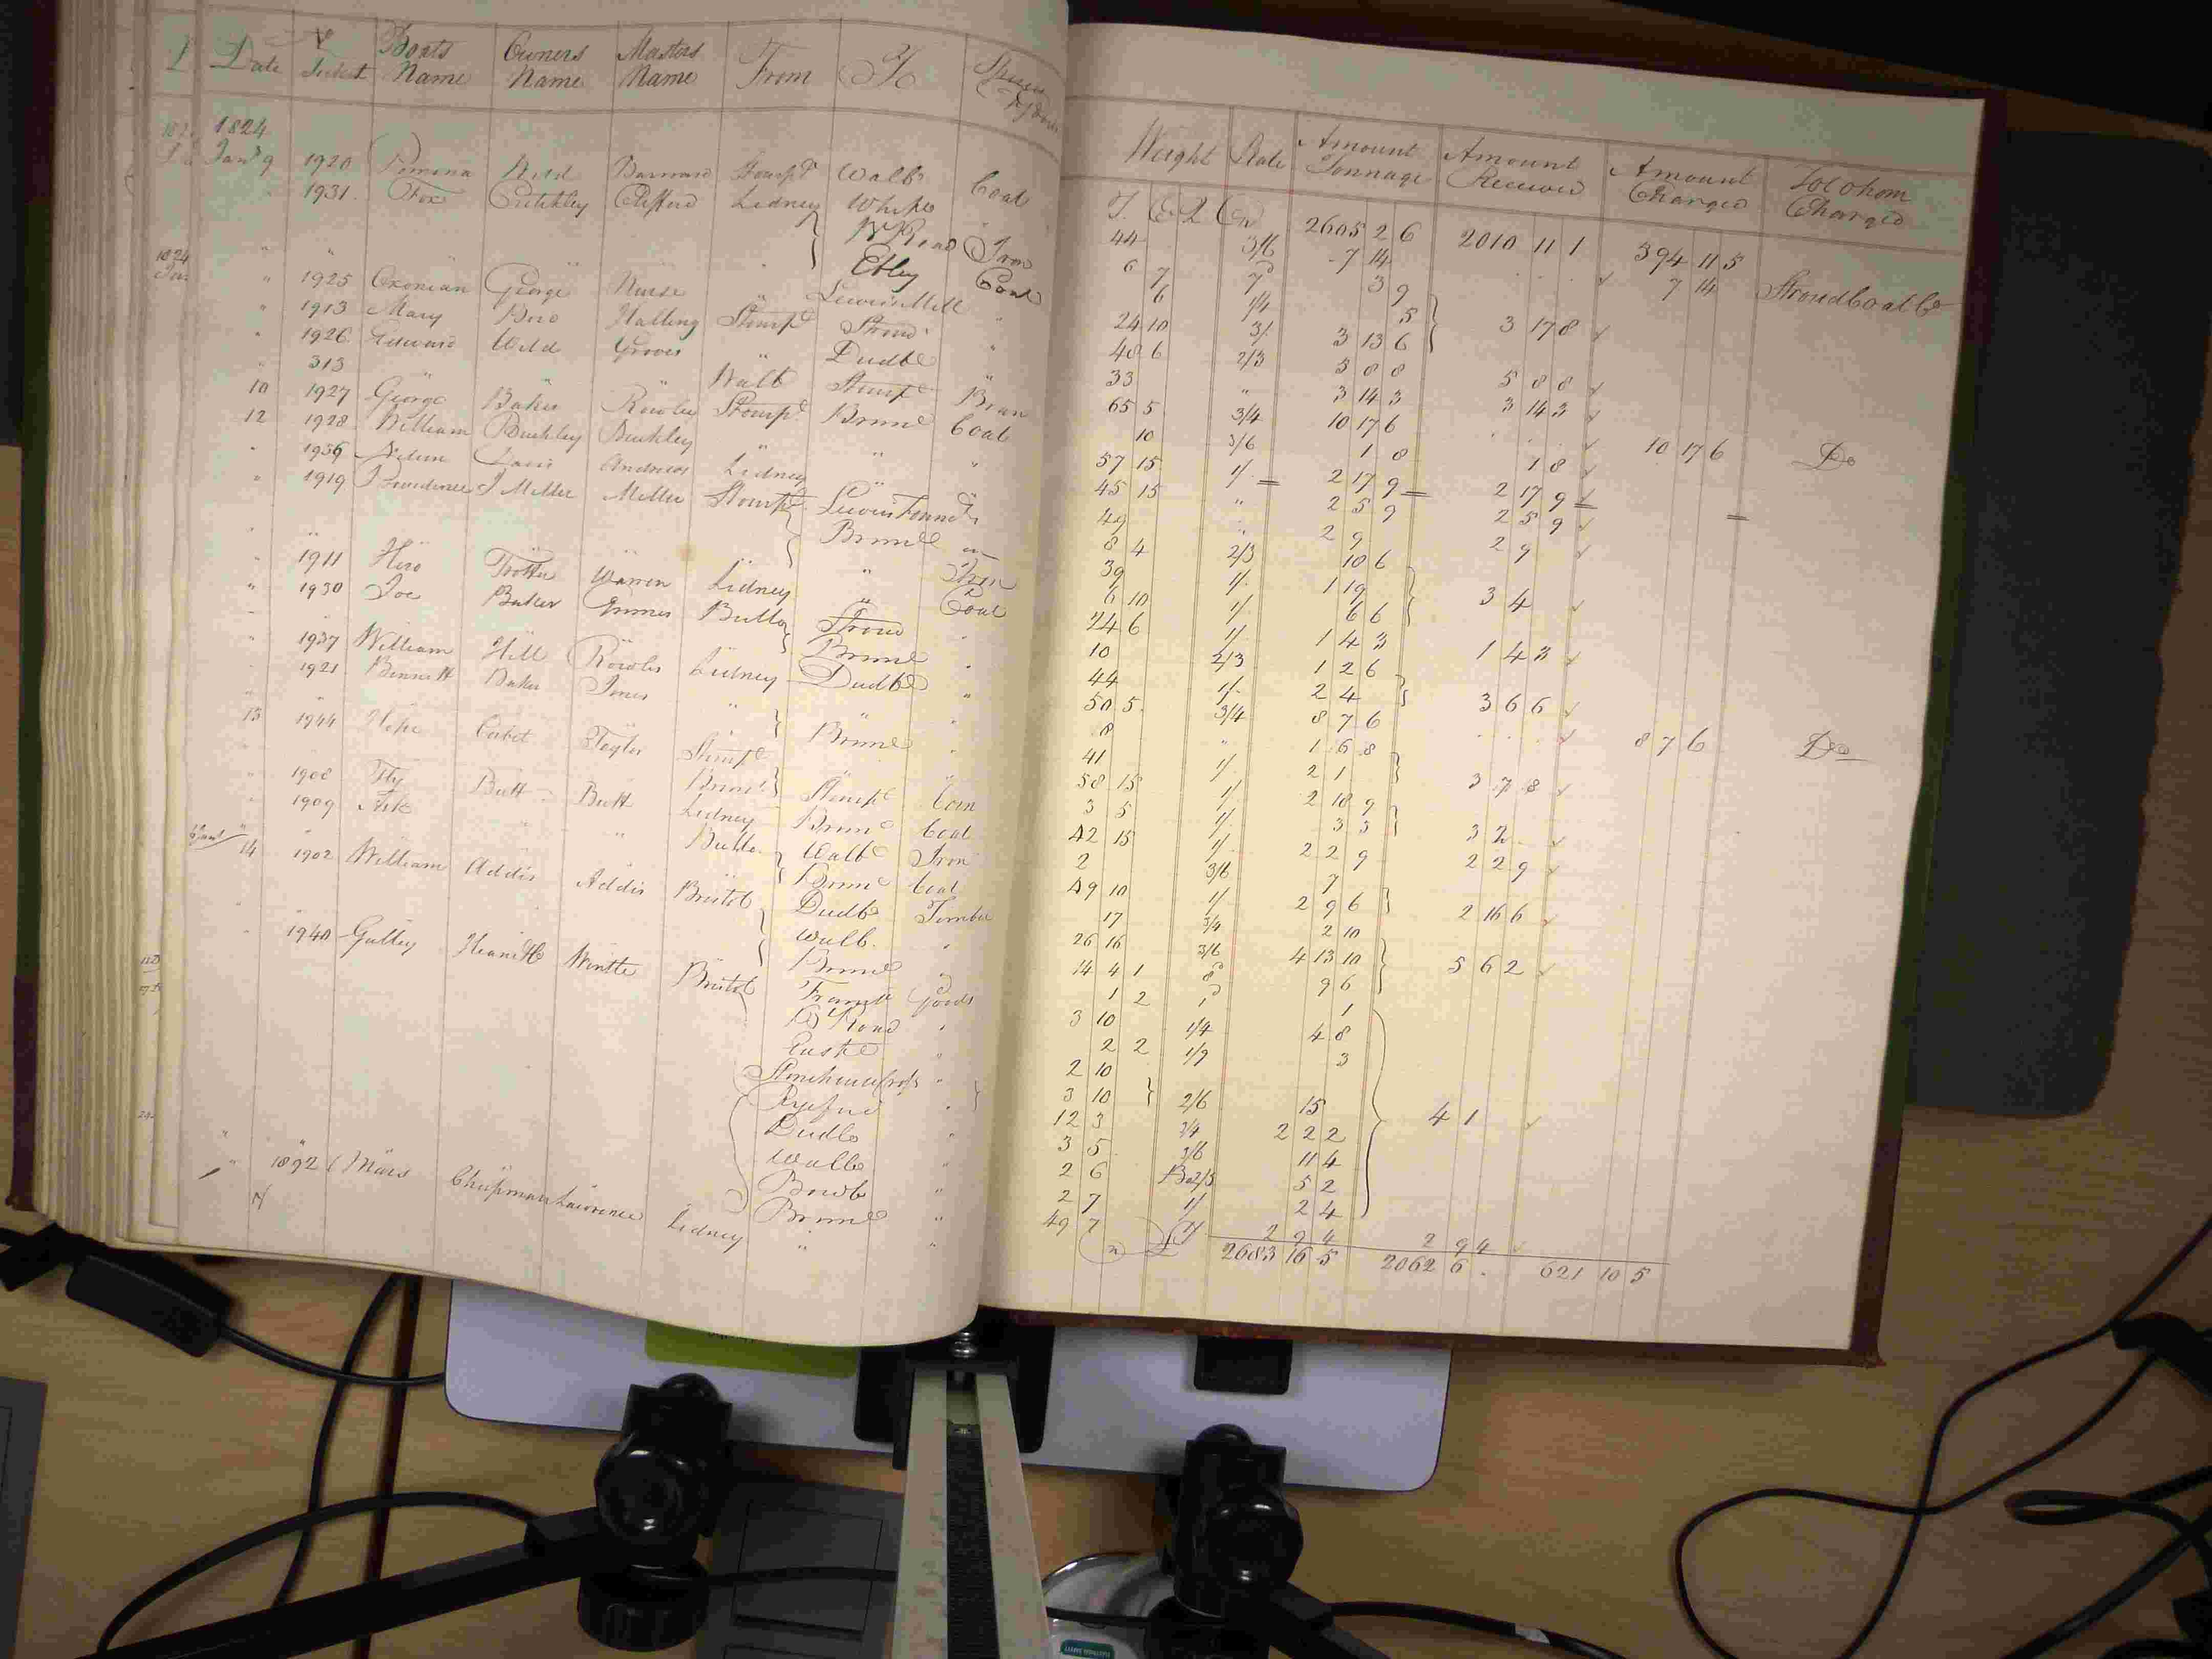 Date Ticket Boats Name Owners Name Masters Name From To
Weight Rate Amount Tonnage Amount Received Amount Charged To Whom Charged
1824
2605 2 6 2010 11 1 394 11 5
Jany 9 1920 Pomona Barnard Stourpt Walbe Coal 44 3/6 7 14 7 14 Stroud Coal Co
1931 Fox Critchley Clifford Lidney 6 7 7d 3 9
Iron 6 1/4 8
Ebley Coal 24 10 3/. 3 13 6 3 17 8
1925 Oxonian George Nurse Lewis Mill 48 6 2/3 5 8 8 5 8 8
1913 Mary Halling Stourpt Stroud 33 3 14 3 3 14 3
1926 Edward Weld Groves Dudbe 65 5 3/4 10 17 6 10 17 6 Do
313 Walb Stourpt Bran 10 3/6 1 8 1 8
10 1927 George Baker Rowley Stourpt Brime Coal 57 15 1/. 2 17 9 2 17 9
12 1928 William Buckley Buckley 45 15 2 5 9 2 5 9
1936 Davis Andrews Lidney 49 2 9 2 9
1919 Providence J Miller Miller Stourpt 8 4 2/3 10 6
Brime 39 1/. 1 19 3 4
6 10 1/. 6 6
1911 Hero Trotter Warren Lidney Coal 24 6 1/. 1 4 3 1 4 3
1930 Joe Baker Grimes Bullo Stroud 10 2/3 1 2 6
Brime 44 1/. 2 4 3 6 6
1937 William Hill Rowles Lidney Dudbe 50 5 3/4 8 7 6 8 7 6 Do
1921 Bennett Baker Jones 8 1 6 8
Brime 41 1/. 2 1 3 7 8
13 1944 Hope Cabot Tayler Stourpt 58 15 1/. 2 18 9
Brime Stourpt Corn 3 5 1/. 3 3 3 2
1908 Fly Butt Butt Lidney Brime Coal 42 15 1/. 2 2 9 2 2 9
1909 Ark Bullo Walbe Iron 2 3/6 7
Brime Coal 49 10 1/. 2 9 6 2 16 6
14 1902 William Addis Addis Bristol Dudbe Timber 17 3/4 2 10
Walb. 26 16 3/6 4 13 10 5 6 2
Brime 14 4 1 8d 9 6
1940 Galley Wintle Bristol Goods 1 2 1
Road 3 10 1/4 4 8
2 2 1/9 3
Stonehouse Cross 2 10
Ryeford 3 10 2/6 15 4 1
Dudbe 12 3 3/4 2 2 2
Walbe 3 5 3/6 11 4
Bowb 2 6 2/3 5 2
Brime 2 7 1/ 2 4
1892 Mars Chapman Lawrence Lidney 49 7 1/. 2 9 4 2 9 4
£ 2683 16 5 2062 6 . 621 10 5